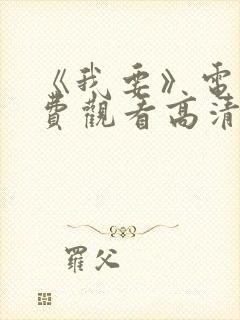 《我要》电
費觀看高清
羅父